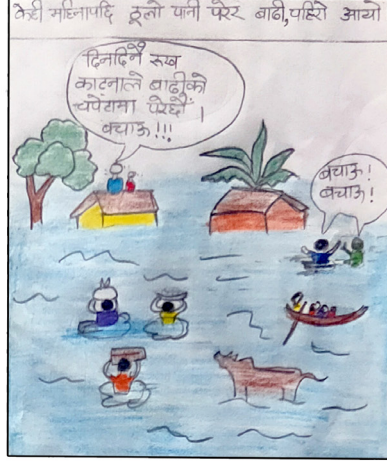 केही महिनापछि ठूलो पानी परेर बाढी,पहिरो आयो
दिनदिनै रूख
काट्नाले बाढीको
चपेटामा परेछौँ ।
बचाऊ !!!
बचाऊ!
बचाऊ!